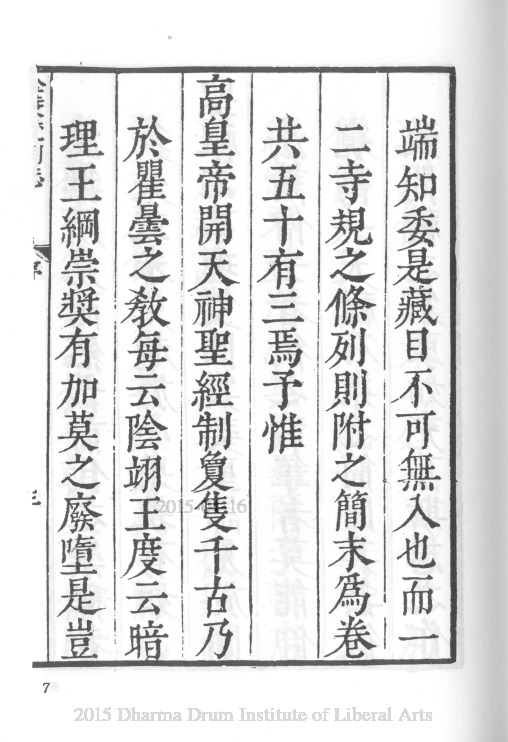 端知委是藏目不可無入也而一
二寺規之條列則附之簡末為卷
共五十有三焉予惟
高皇帝開天神聖經制敻隻千古乃
於瞿曇之教每云陰翊王度云暗
理王綱崇奬有加莫之廢墮是豈
7
2015 Dharma Drum Institute of Liberal Arts